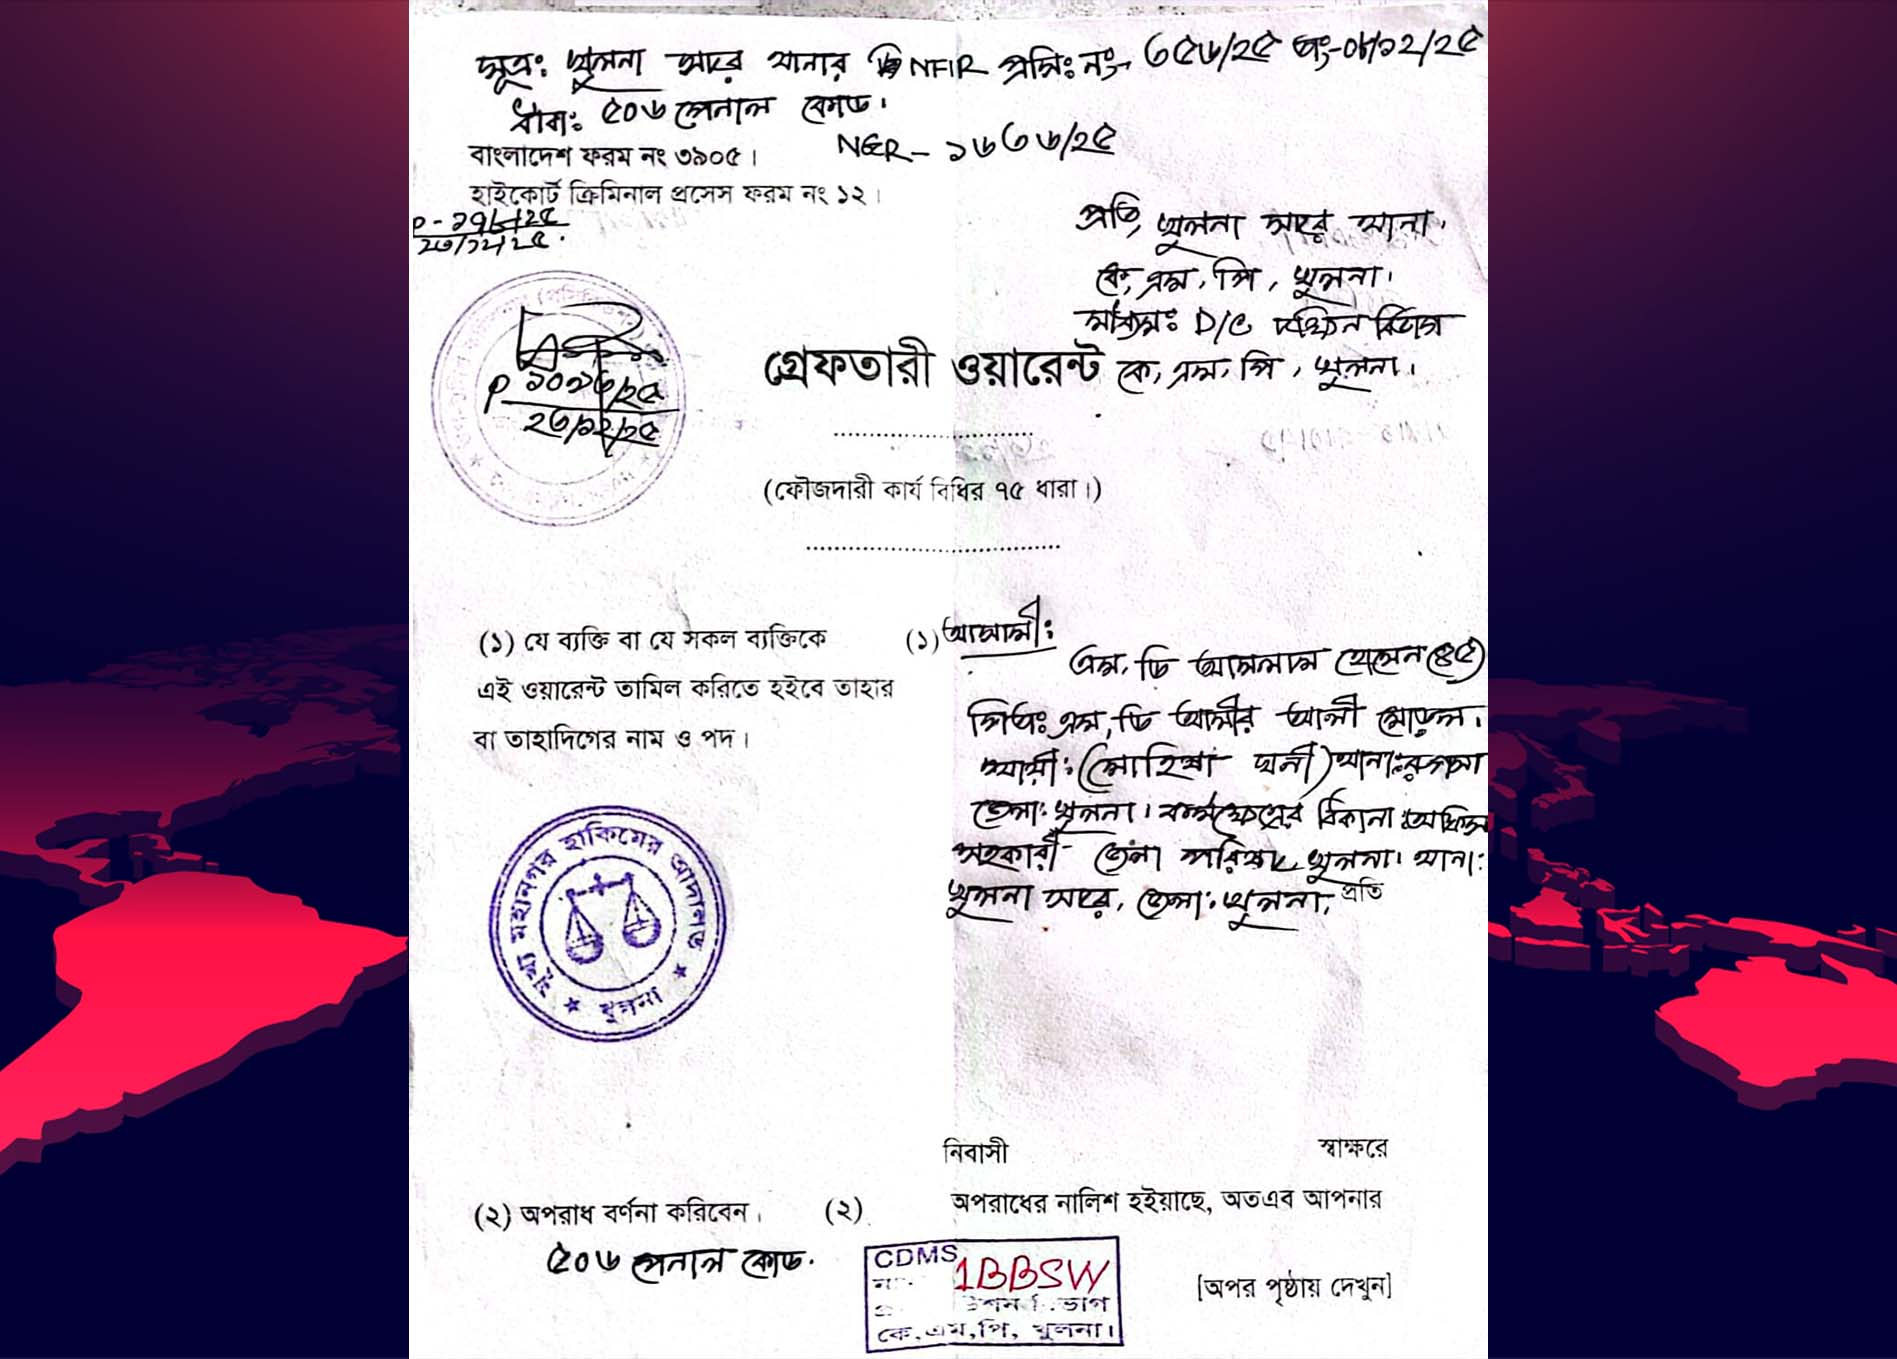 সূত্র: খুলনা সদর থানার NFIR প্রসি: নং- ৩৫৬/২৫ তাং-০৮/১২/২৫
ধারা: ৫০৬ পেনাল কোড।
বাংলাদেশ ফরম নং ৩৯০৫।
NGR- ১৬৩৬/২৫
হাইকোর্ট ক্রিমিনাল প্রসেস ফরম নং ১২।
২৩/১২/২৫.
প্রতি, খুলনা সদর থানা।
কে, এম, পি, খুলনা।
মাধ্যম: D/C দক্ষিন বিভাগ
গ্রেফতারী ওয়ারেন্ট
কে, এম, পি, খুলনা।
২৩/১২/২৫
(ফৌজদারী কার্য বিধির ৭৫ ধারা।)
(১) যে ব্যক্তি বা যে সকল ব্যক্তিকে
এই ওয়ারেন্ট তামিল করিতে হইবে তাহার
বা তাহাদিগের নাম ও পদ।
(১) আসামী:
এম, ডি আসলাম হোসেন (৪৫)
পিতা: এম, ডি আমীর আলী মোড়ল।
থানা: রুপসা
জেলা: খুলনা। কর্মক্ষেত্রের ঠিকানা: অফিস
সহকারী জেলা পরিষদ খুলনা। থানা:
খুলনা সদর, জেলা: খুলনা,
প্রতি
মুখ্য মহানগর হাকিমের আদালত
খুলনা
নিবাসী স্বাক্ষরে
(২) অপরাধ বর্ণনা করিবেন।
(২) অপরাধের নালিশ হইয়াছে, অতএব আপনার
৫০৬ পেনাল কোড.
CDMS
1BBSW
কে, এম, পি, খুলনা।
[অপর পৃষ্ঠায় দেখুন]